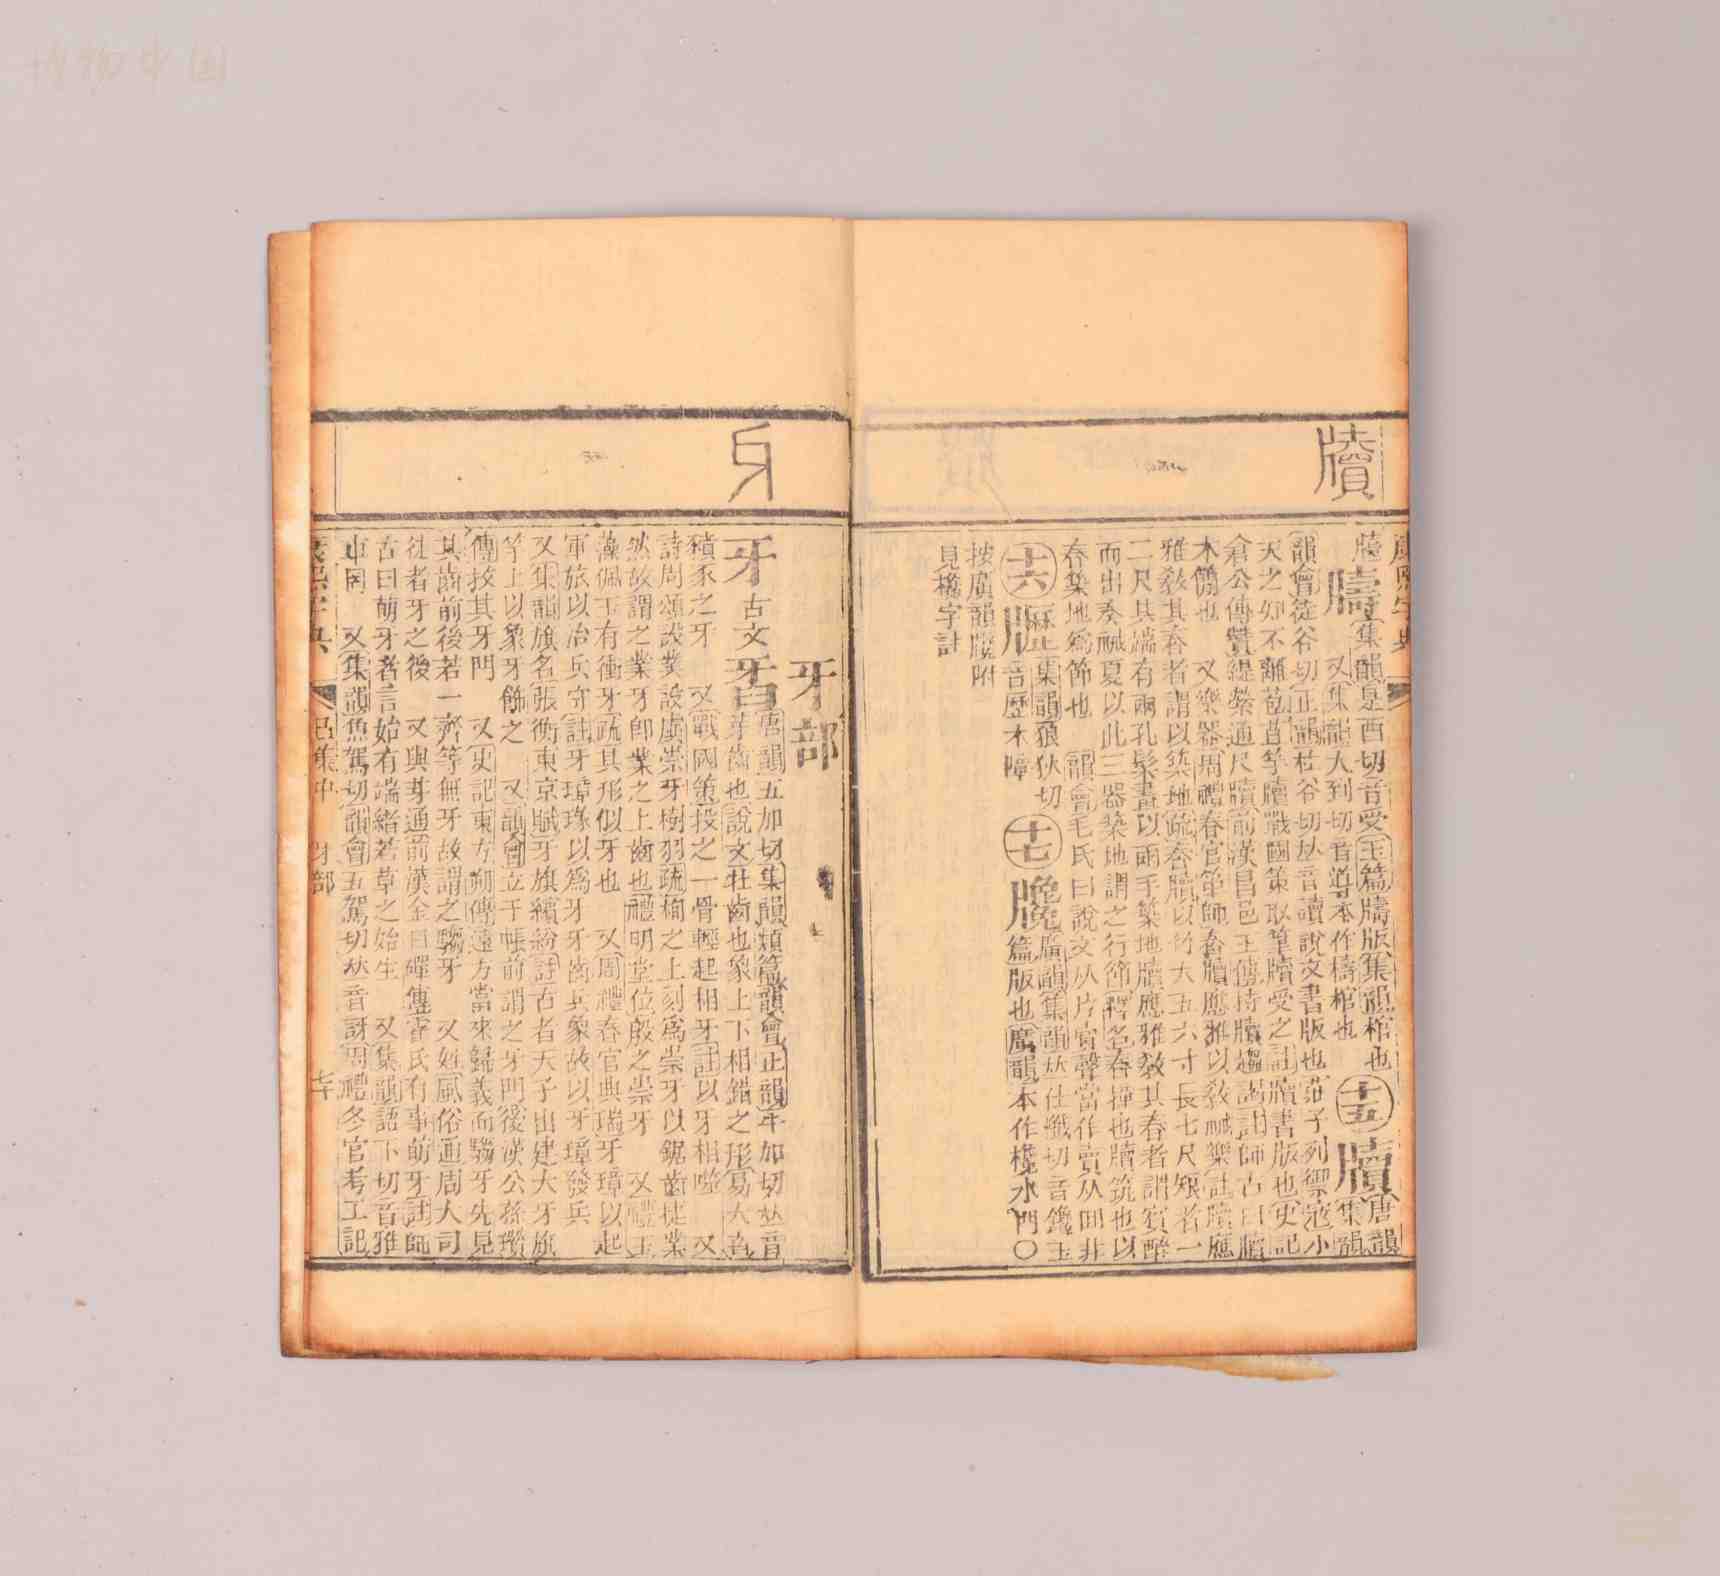 牘
康熙字典
集韻是酉切音受玉篇牘版集韻棺也 十五 牘 唐韻
又集韻大到切音導本作檮棺也 集韻
韻會徒谷切正韻杜谷切𠀤音讀說文書版也莊子列禦寇小
夫之知不離苞苴竿牘戰國策取筆牘受之註牘書版也史記
倉公傳贊緹縈通尺牘前漢昌邑王傳持牘趨謁註師古曰牘
木𥳑也 又樂器周禮春官笙師舂牘應雅以敎祴樂註牘應
雅敎其舂者謂以築地疏舂牘以竹大五六寸長七尺短者一
二尺其端有兩孔髹畫以兩手築地牘應雅敎其舂者謂賓醉
而出奏祴夏以此三器築地謂之行節釋名舂撞也牘筑也以
舂築地爲節也 韻會毛氏曰說文从片𧶠聲當作賣从罒非
十六 集韻狼狄切 十七 廣韻集韻𠀤仕懺切音鑱玉
音歷木障 篇版也廣韻本作 水門〇
按廣韻 附
見 字註
牙
牙部
牙 古文 𤘈 唐韻五加切集韻類篇韻會正韻牛加切𠀤音
芽齒也說文牡齒也象上下相錯之形易大畜
豶豕之牙 又戰國策投之一骨輕起相牙註以牙相噬 又
詩周頌設業設虡崇牙樹羽疏栒之上刻爲崇牙以鋸齒捷業
然故謂之業牙卽業之上齒也禮明堂位殷之崇牙 又禮玉
藻佩玉有衝牙疏其形似牙也 又周禮春官典瑞牙璋以起
軍旅以治兵守註牙璋瑑以爲牙牙齒兵象故以牙璋發兵
又集韻旗名張衡東京賦牙旗繽紛註古者天子出建大牙旗
竿上以象牙飾之 又韻會立于帳前謂之牙門後漢公孫瓚
傳拔其牙門 又史記東方朔傳遠方當來歸義而騶牙先見
其齒前後若一齊等無牙故謂之騶牙 又姓風俗通周大司
徒君牙之後 又與芽通前漢金日磾傳霍氏有事萌牙註師
古曰萌牙者言始有端緒若草之始生 又集韻語下切音雅
車輞 又集韻魚駕切韻會五駕切𠀤音訝周禮冬官考工記
康熙字典 巳集中 牙部 七十
博物中国